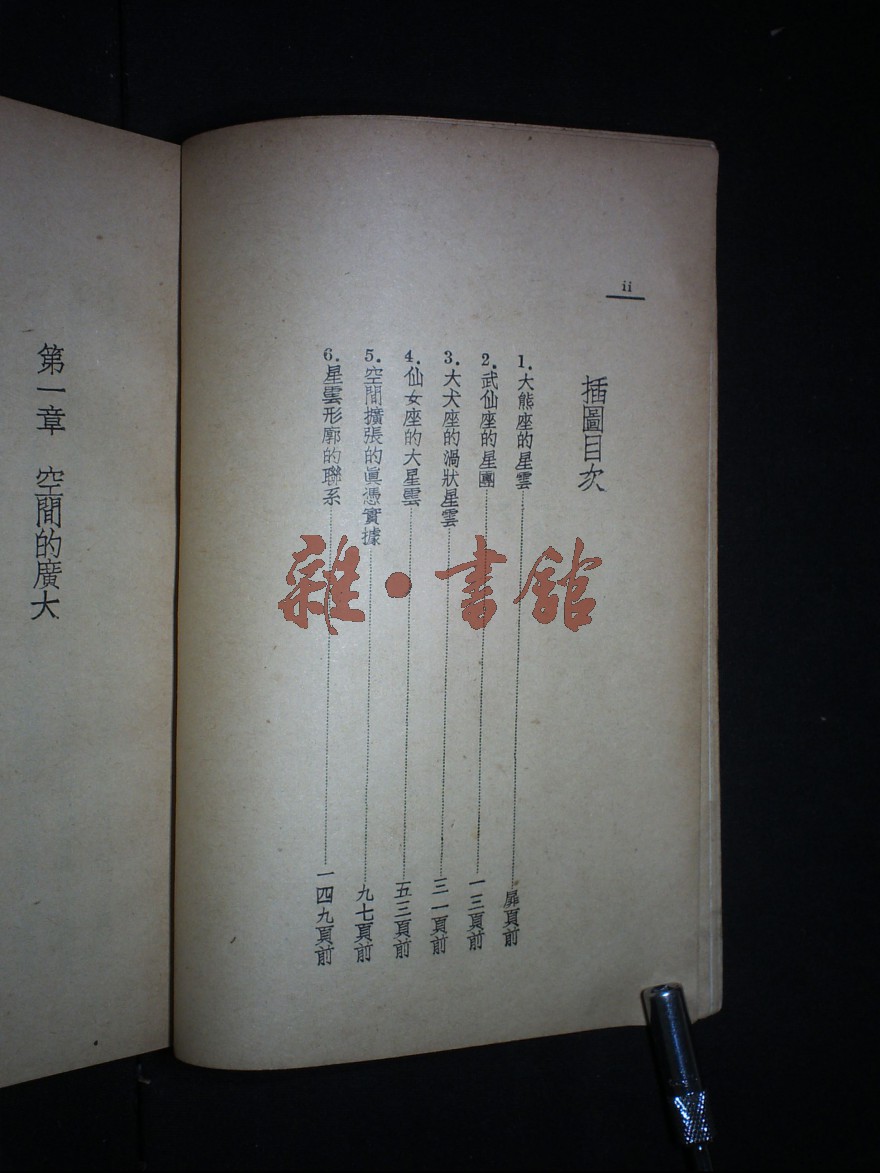 ii
插圖目次
1. 大熊座的星雲……扉頁前
2. 武仙座的星團……一三頁前
3. 大犬座的渦狀星雲……三一頁前
4. 仙女座的大星雲……五三頁前
5. 空間擴張的眞憑實據……九七頁前
6. 星雲形廓的聯系……一四九頁前
第一章 空間的廣大
雜•書館